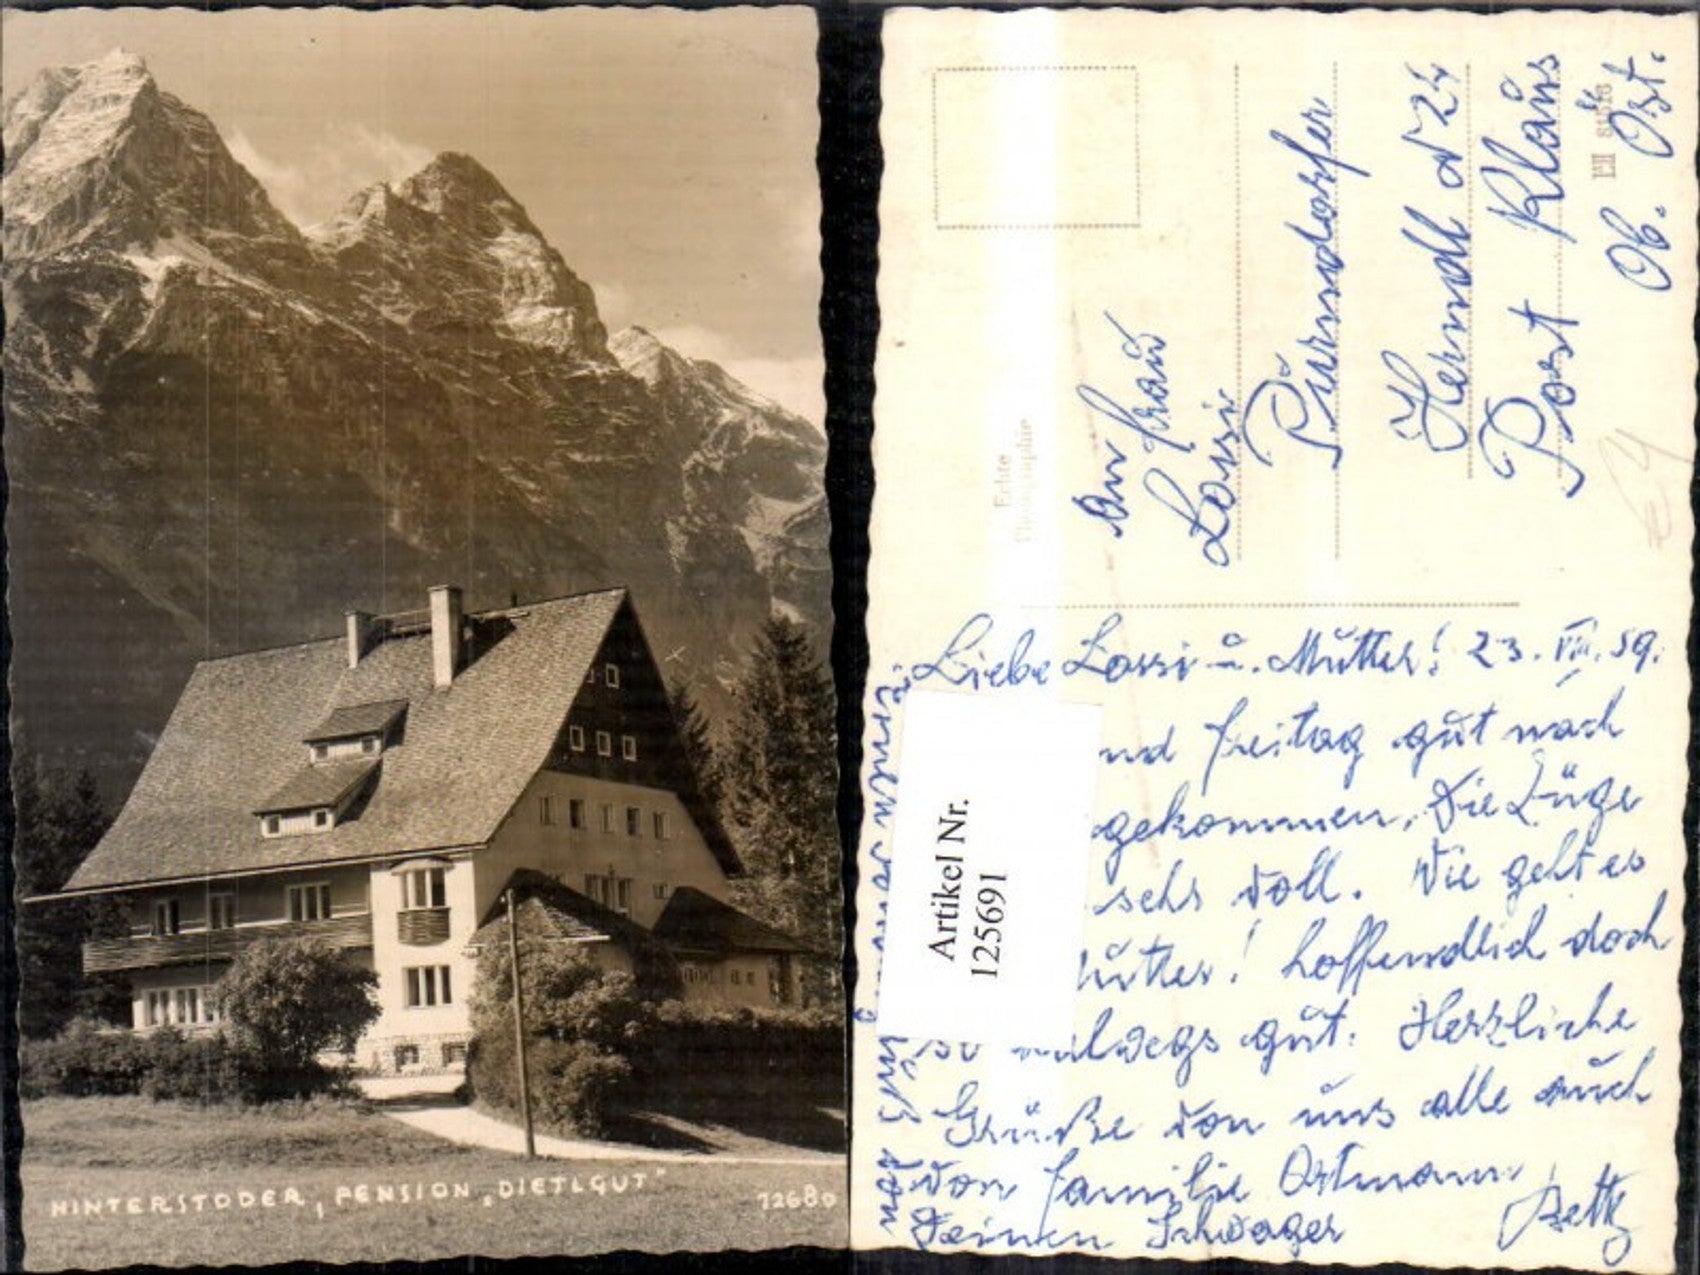 HINTERSTODER, PENSION „DIETLGUT"
72680
Echte
Photographie
An Frau
Lossi
Pürndorfer
Herndl N 24
Post Klaus
Ob. Öst.
Artikel Nr.
125691
Liebe Lossi u. Mutter! 23. VIII. 59.
Freitag gut nach
gekommen, die Züge
sehr voll. Wie geht es
Mutter! hoffendlich doch
gut. Herzliche
Grüße von uns alle auch
von Familie Ortmann
Deinen Schwager Betti